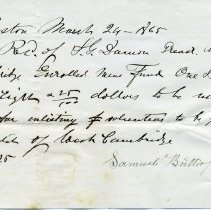 ston March 24 - 1865
Recd. of S. G. Damon Treas.
idge Enrolled Mens Fund One
Eight & 25/100 dollars to be
for enlisting volunteers to
of West Cambridge
25
Samuel Butler